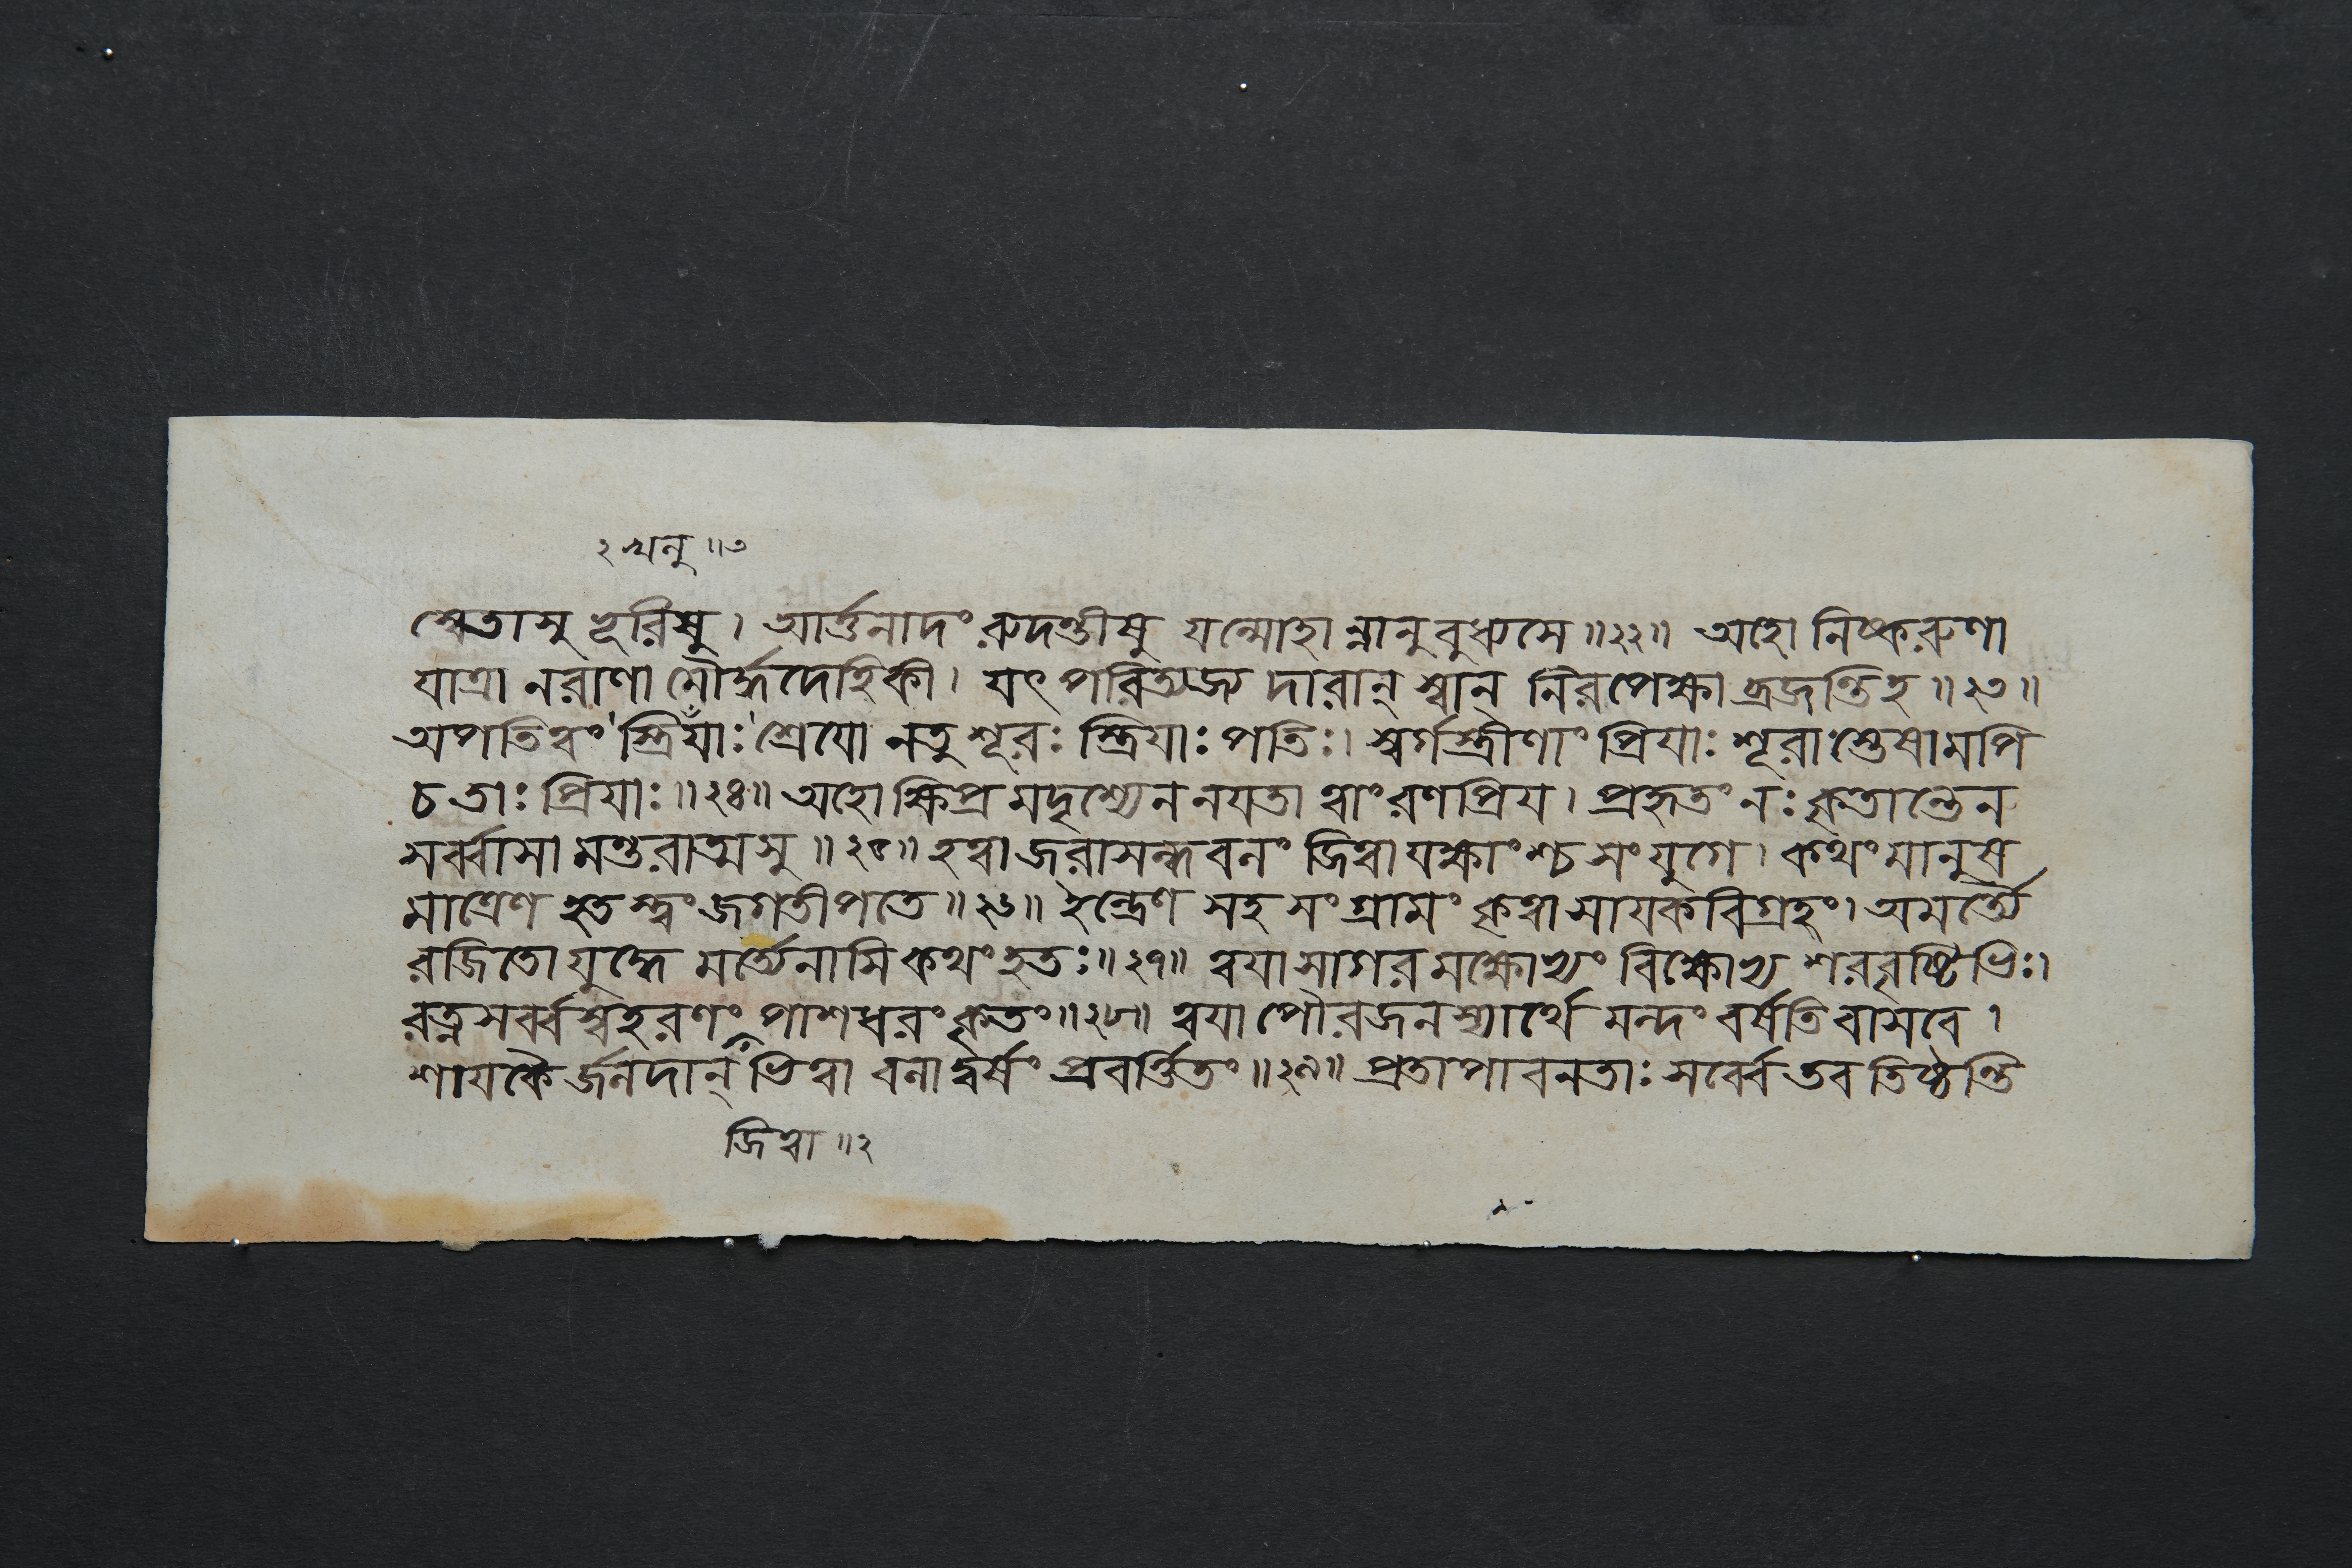 ২ খলু ॥৩
শ্চেতাসু ভূরিষু। আর্ত্তনাদং রুদন্তীষু যন্মোহান্নানুবুধ্যসে॥২২॥ অহো নিষ্করুণা
যাত্রা নরাণামৌর্দ্ধদেহিকী। যৎ পরিত্যজ্য দারান্ স্বান্ নিরপেক্ষা ব্রজন্তিহ॥২৩॥
অপতিত্বং স্ত্রিযাঁঃ শ্রেযো নতু শূরঃ স্ত্রিযাঃ পতিঃ। স্বর্গস্ত্রীণাং প্রিযাঃ শূরাস্তেষামপি
চ তাঃ প্রিযাঃ॥২৪॥ অহো ক্ষিপ্রমদৃশ্যেন নযতা ত্বাং রণপ্রিয। প্রহৃতং নঃ কৃতান্তেন
সর্ব্বাসামন্তরাত্মসু॥২৫॥ হত্বা জরাসন্ধবনং জিত্বা যক্ষাংশ্চ সংযুগে। কথং মানুষ
মাত্রেণ হতস্ত্বং জগতীপতে॥২৬॥ ইন্দ্রেণ সহ সংগ্রামং কৃত্বা সাযকবিগ্রহং। অমর্ত্ত্যৈ
রজিতো যুদ্ধে মর্ত্ত্যেনাসি কথং হতঃ॥২৭॥ ত্বযা সাগরমক্ষোভ্যং বিক্ষোভ্য শরবৃষ্টিভিঃ।
রত্নসর্ব্বস্বহরণং পাশধরং কৃতং॥২৮॥ ত্বযা পৌরজনস্যার্থে মন্দং বর্ষতি বাসবে।
শাযকৈর্জনদান্ ভিত্বা বনাদ্বর্ষং প্রবর্ত্তিতং॥২৯॥ প্রতাপাবনতাঃ সর্ব্বে তব তিষ্ঠন্তি
জিত্বা॥২